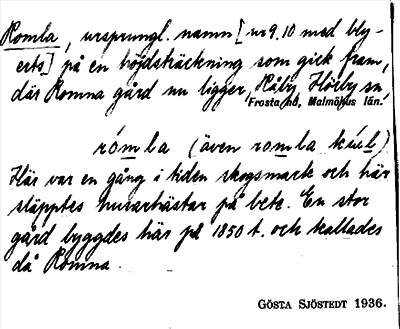 Romla, ursprungl. namn [nr 9, 10 med bly-
erts] på en höjdsträckning som gick fram,
där Romna gård nu ligger, Råby, Hörby sn,
Frosta hd, Malmöhus län.
rómla (även romla kúl)
Här var en gång i tiden skogsmark och här
släpptes husarhästar på bete. En stor
gård byggdes här på 1850 t. och kallades
då Romna.
GÖSTA SJÖSTEDT 1936.